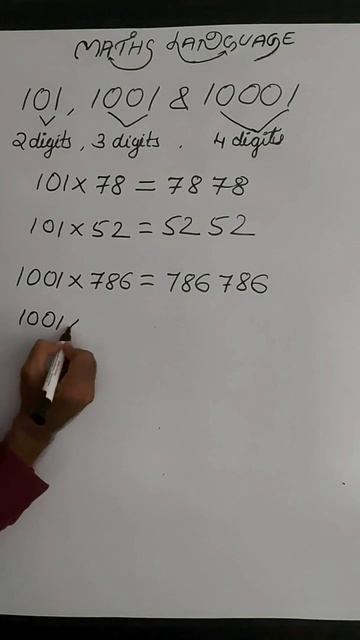 MATHS LANGUAGE
101, 1001 & 10001
2 digits, 3 digits, 4 digits
101 x 78 = 7878
101 x 52 = 5252
1001 x 786 = 786 786
1001